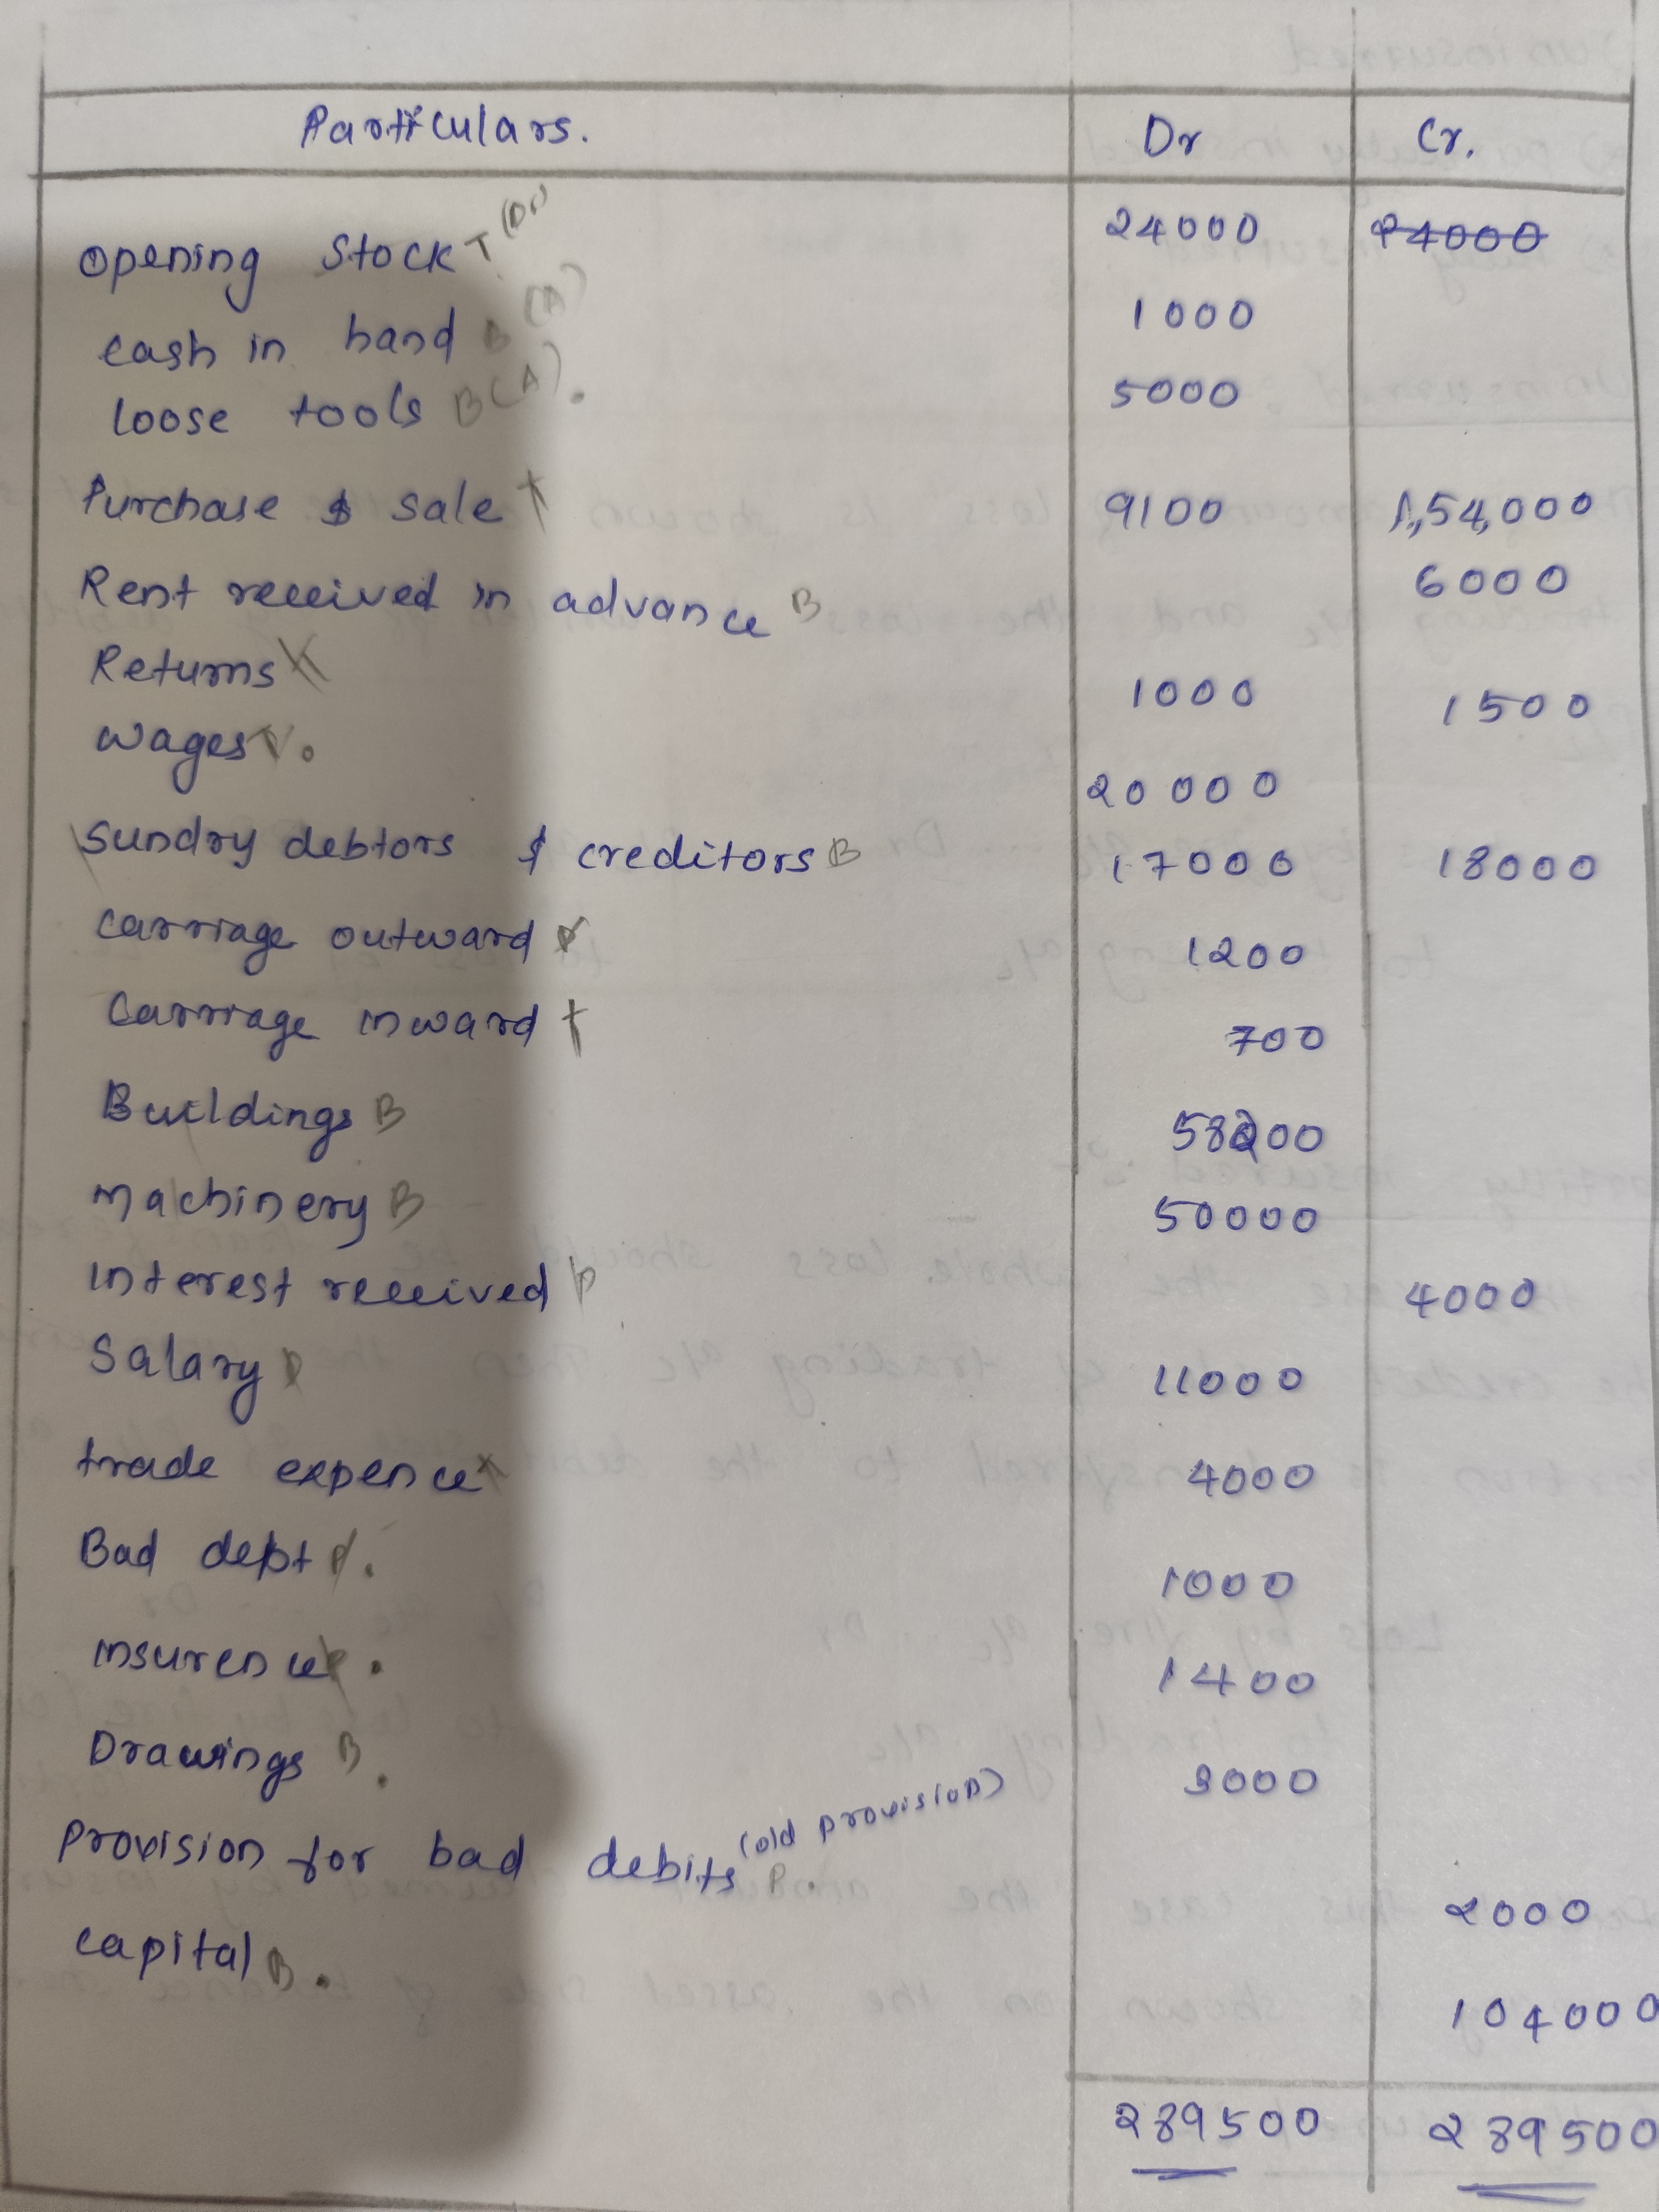 Particulars. Dr Cr.
Opening Stock T (Dr) 24000 24000
cash in hand B (A) 1000
loose tools B(A). 5000
Purchase & sale T 9100 1,54,000
Rent received in advance B 6000
Returns 1000 1500
wages T. 20000
Sundry debtors & creditors B 17000 18000
Carriage outward P 1200
Carriage inward T 700
Buildings B 58200
Machinery B 50000
Interest received P 4000
Salary P 11000
trade expence 4000
Bad debt P. 1000
insurence P. 1400
Drawings B. 3000
Provision for bad debits (old provision) P. 2000
capital B. 104000
289500 289500